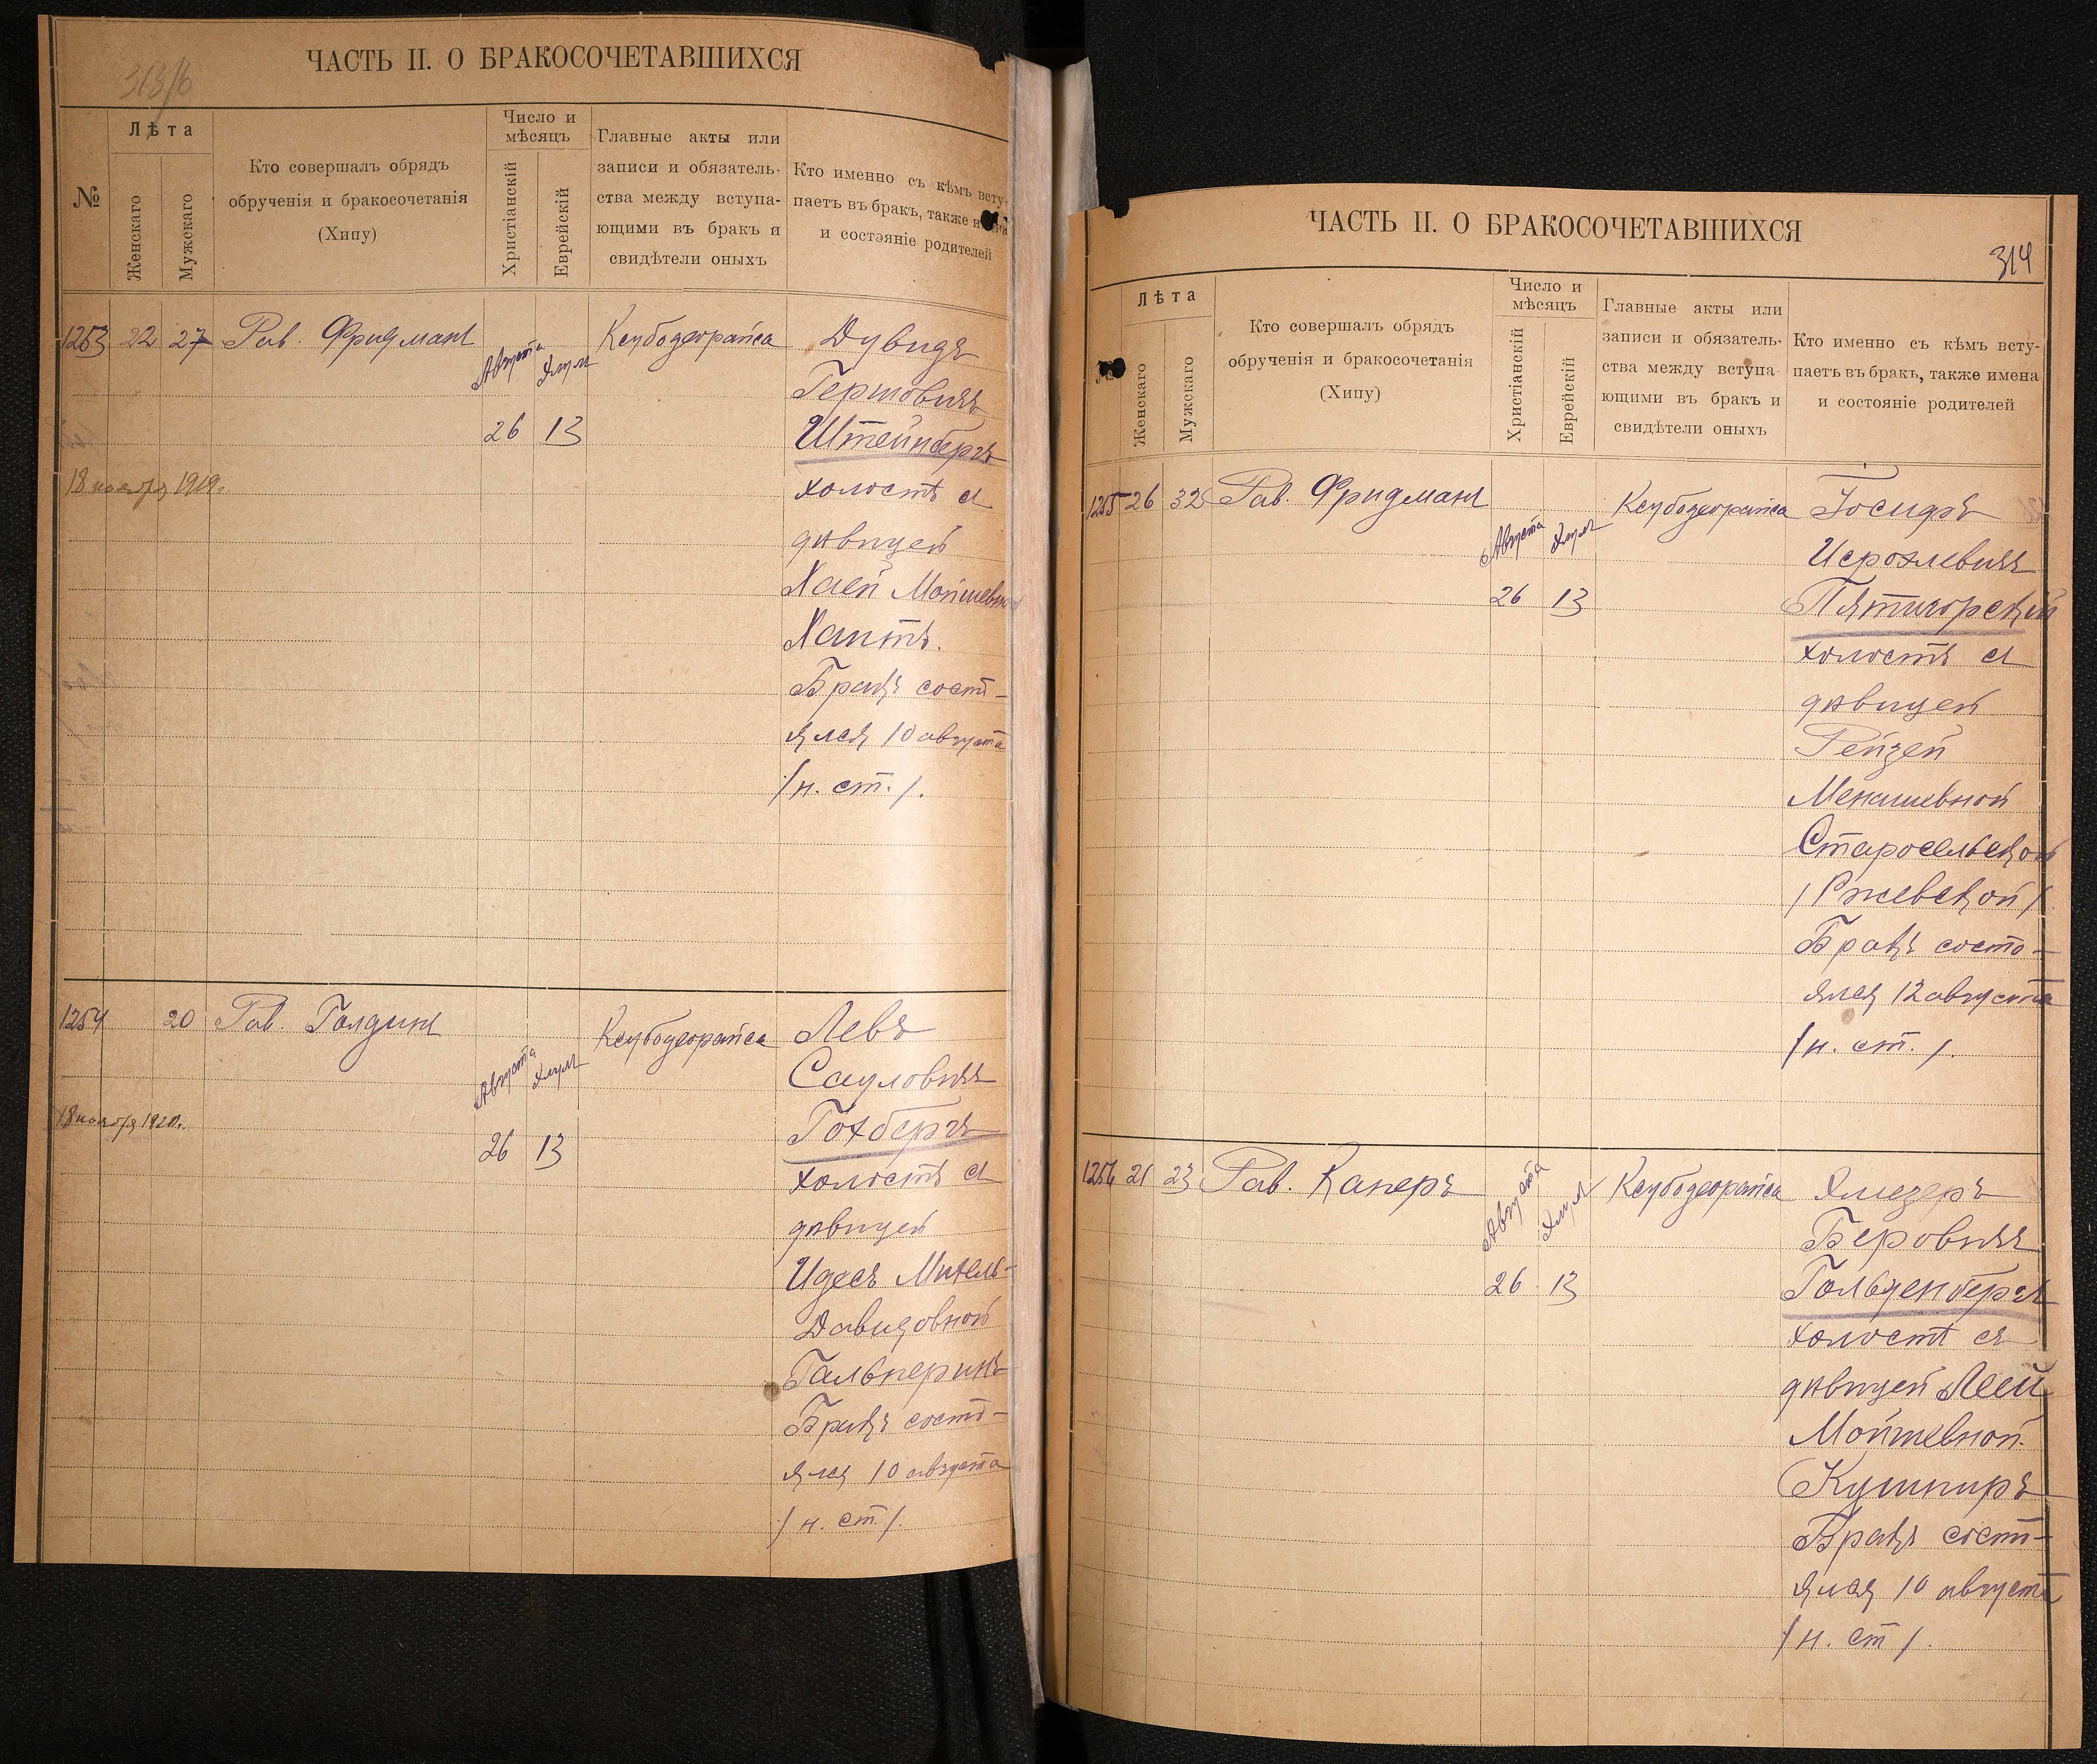 ЧАСТЬ II. О БРАКОСОЧЕТАВШИХСЯ
313/б
№
Лѣта
Женскаго
Мужскаго
Кто совершалъ обрядъ
обрученія и бракосочетанія
(Хипу)
Число и
мѣсяцъ
Христіанскій
Еврейскій
Главные акты или
записи и обязатель-
ства между вступа-
ющими въ бракъ и
свидѣтели оныхъ
Кто именно съ кѣмъ всту-
паетъ въ бракъ, также
и состояніе родителей
1253 22 27 Рав. Фридманъ
Августа
26 13
Ксубодеорайса
Дувидъ
Гершовичъ
Штейнбергъ
18 ноября 1919г.
холостъ съ
дѣвицей
Хаей Мойшевной
Хаитъ.
Бракъ состо-
ялся 10 августа
/н. ст./.
1254 20 Рав. Голдинъ
Августа
26 13
Ксубодеорайса
Левъ
Сауловичъ
Гохбергъ
18 ноября 1920г.
холостъ съ
дѣвицей
Идесъ Михель-
Давидовной
Гальперинъ
Бракъ состо-
ялся 10 августа
/н. ст./.
ЧАСТЬ II. О БРАКОСОЧЕТАВШИХСЯ
314
№
Лѣта
Женскаго
Мужскаго
Кто совершалъ обрядъ
обрученія и бракосочетанія
(Хипу)
Число и
мѣсяцъ
Христіанскій
Еврейскій
Главные акты или
записи и обязатель-
ства между вступа-
ющими въ бракъ и
свидѣтели оныхъ
Кто именно съ кѣмъ всту-
паетъ въ бракъ, также имена
и состояніе родителей
1255 26 32 Рав. Фридманъ
Августа
26 13
Ксубодеорайса
Іосифъ
Исроэлевичъ
Пятигорскій
холостъ съ
дѣвицей
Рейзей
Менашевной
Старосельской
/Ржевской/
Бракъ состо-
ялся 12 августа
/н. ст./.
1256 21 23 Рав. Каперъ
Августа
26 13
Ксубодеорайса
Элиезеръ
Беровичъ
Гольденбергъ
холостъ съ
дѣвицей Леей
Мойшевной
Кушниръ
Бракъ состо-
ялся 10 августа
/н. ст/.